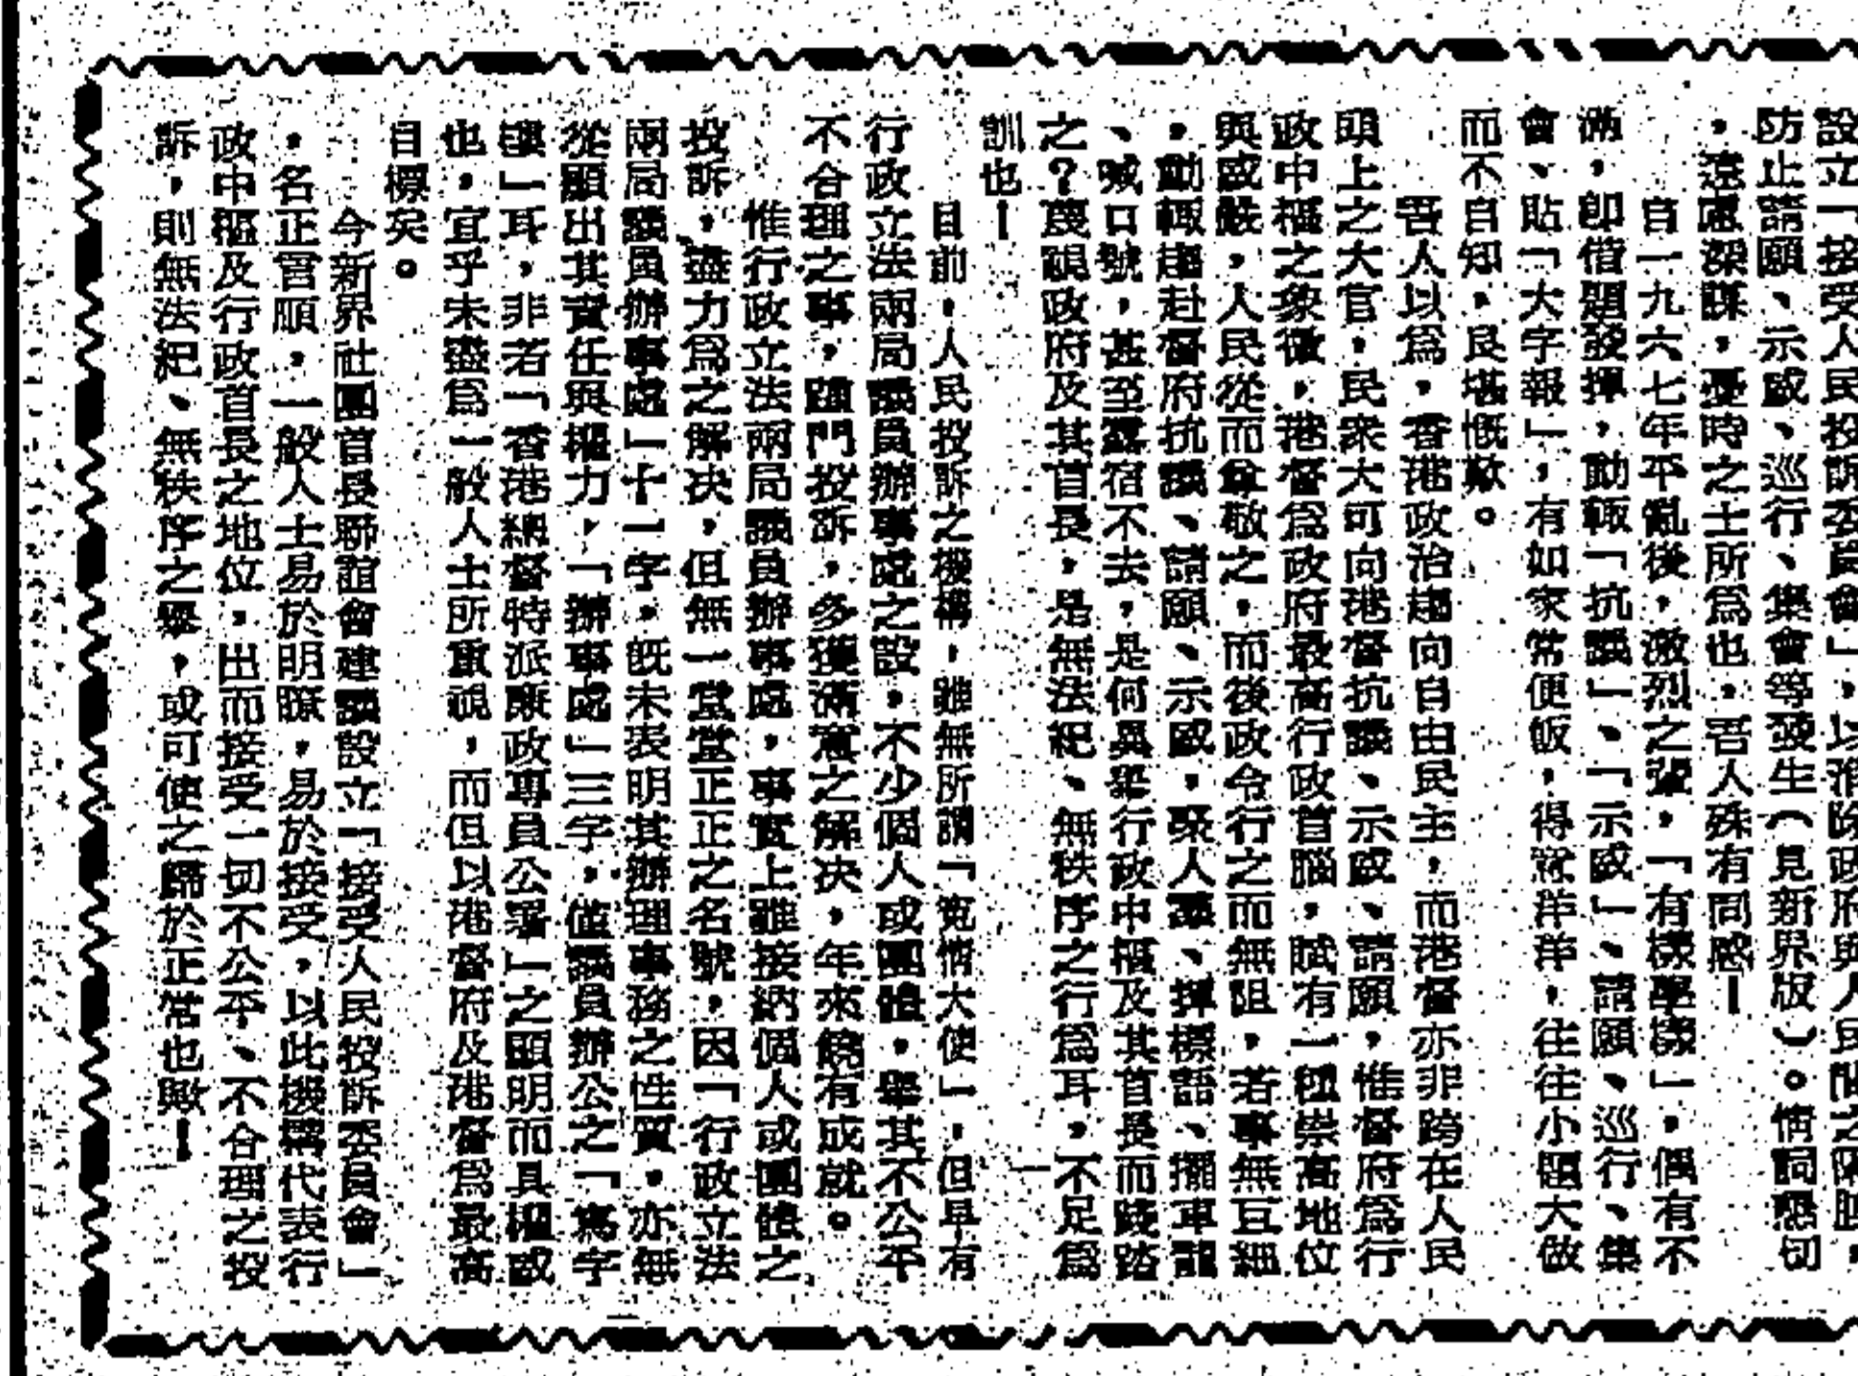 設立「接受人民投訴委員會」，以消除政府與人民間之隔膜，
防止請願、示威、巡行、集會等發生（見新界版）。情詞懇切
，遠慮深謀，憂時之士所爲也，吾人殊有同感！
自一九六七年平亂後，激烈之輩，「有樣學樣」，偶有不
滿，卽借題發揮，動輒「抗議」、「示威」、請願、巡行、集
會、貼「大字報」，有如家常便飯，得意洋洋，往往小題大做
而不自知，良堪慨歎。
吾人以爲，香港政治趨向自由民主，而港督亦非跨在人民
頭上之大官，民衆大可向港督抗議、示威、請願，惟督府爲行
政中樞之象徵，港督爲政府最高行政首腦，賦有一種崇高地位
與威嚴，人民從而尊敬之，而後政令行之而無阻，若事無巨細
，動輒趨赴督府抗議、請願、示威，聚人羣、揮標語、擺車龍
、喊口號，甚至露宿不去，是何異舉行政中樞及其首長而踐踏
之？蔑視政府及其首長，是無法紀、無秩序之行爲耳，不足爲
訓也！
目前，人民投訴之機構，雖無所謂「寃情大使」，但早有
行政立法兩局議員辦事處之設，不少個人或團體，舉其不公平
不合理之事，踵門投訴，多獲滿意之解決，年來饒有成就。
惟行政立法兩局議員辦事處，事實上雖接納個人或團體之
投訴，盡力爲之解決，但無一堂堂正正之名號，因「行政立法
兩局議員辦事處」十一字，旣未表明其辦理事務之性質，亦無
從顯出其責任與權力，「辦事處」三字，僅議員辦公之「寫字
樓」耳，非若「香港總督特派廉政專員公署」之顯明而具權威
也，宜乎未盡爲一般人士所重視，而但以港督府及港督爲最高
目標矣。
今新界社團首長聯誼會建議設立「接受人民投訴委員會」
，名正言順，一般人士易於明瞭，易於接受，以此機構代表行
政中樞及行政首長之地位，出而接受一切不公平、不合理之投
訴，則無法紀、無秩序之舉，或可使之歸於正常也歟！